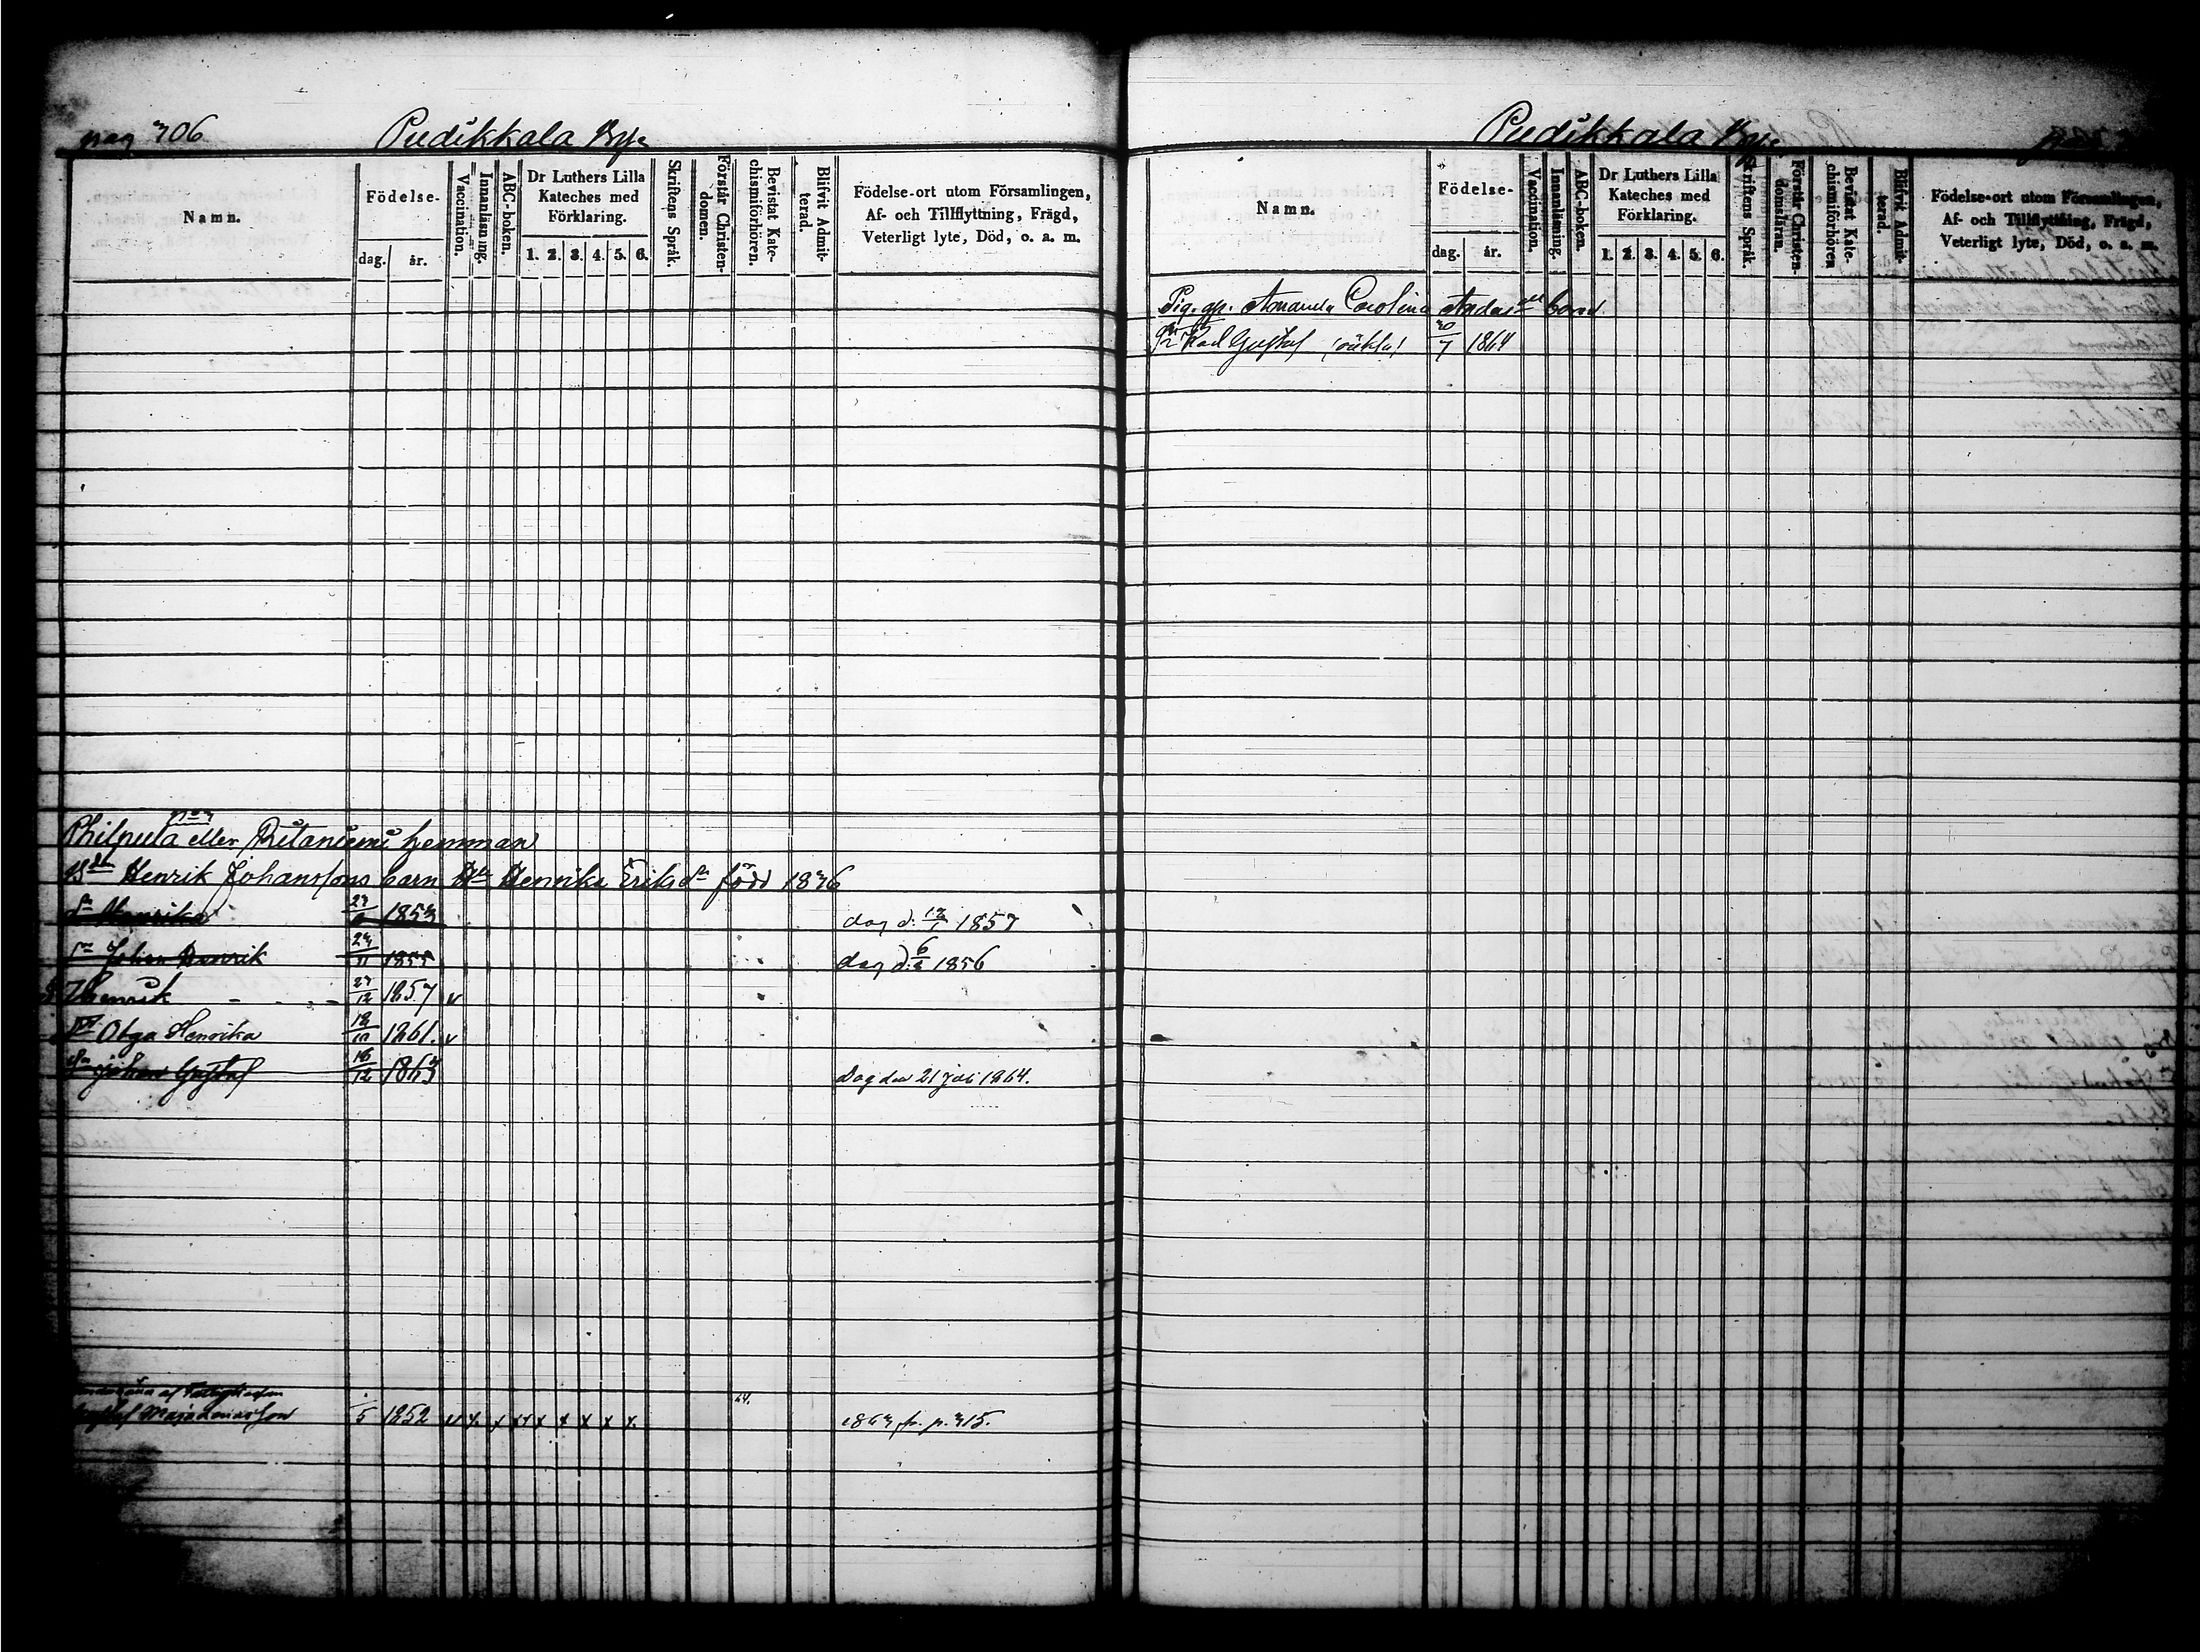 pag 306 Pudikkala By
Namn.
Födelse-
dag. år.
Vaccination.
Innanläsning.
ABC-boken.
Dr Luthers Lilla Kateches med Förklaring.
1. 2. 3. 4. 5. 6.
Skriftens Språk.
Förstår Christendomen.
Bevistat Katechismiförhören.
Blifvit Admitterad.
Födelse-ort utom Församlingen,
Af- och Tillflyttning, Frägd,
Veterligt lyte, Död, o. a. m.
Philpula eller Ritaniemi hemman
Henrik Johanssons barn Henrika Eriksdr född 1836
dr Henrika 1853 dog d. 1857
sn Johan Henrik 23/11 1855 dog d. 1856
Henrik 27/12 1857 v
Olga Henrika 1861. v
sn Johan Gustaf 16/12 1863 Dog den 21 juli 1864.
64.
5 1852 v x x x x x x x x x. 1863 fr. p. 315.
Pudikkala By
Namn.
Födelse-
dag. år.
Vaccination.
Innanläsning.
ABC-boken.
Dr Luthers Lilla
Kateches med
Förklaring.
1. 2. 3. 4. 5. 6.
Skriftens Språk.
Förstår Christendomsläran.
Bevistat Katechismiförhören
Blifvit Admitterad.
Födelse-ort utom Församlingen,
Af- och Tillflyttning, Frägd,
Veterligt lyte, Död, o. a. m.
Pig. gp. Amanda Carolina barn
Karl Gustaf (oäkta) 30/7 1864